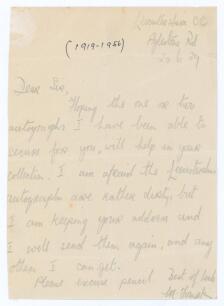 Aylestone Rd
(1919-1956)
Dear Sir,
Hoping the one or two
autographs I have been able to
secure for you, will help in your
collection. I am afraid the
autographs are rather dirty, but
I am keeping your address and
I will send them again, and any
others I can get.
Please excuse pencil
Best of luck